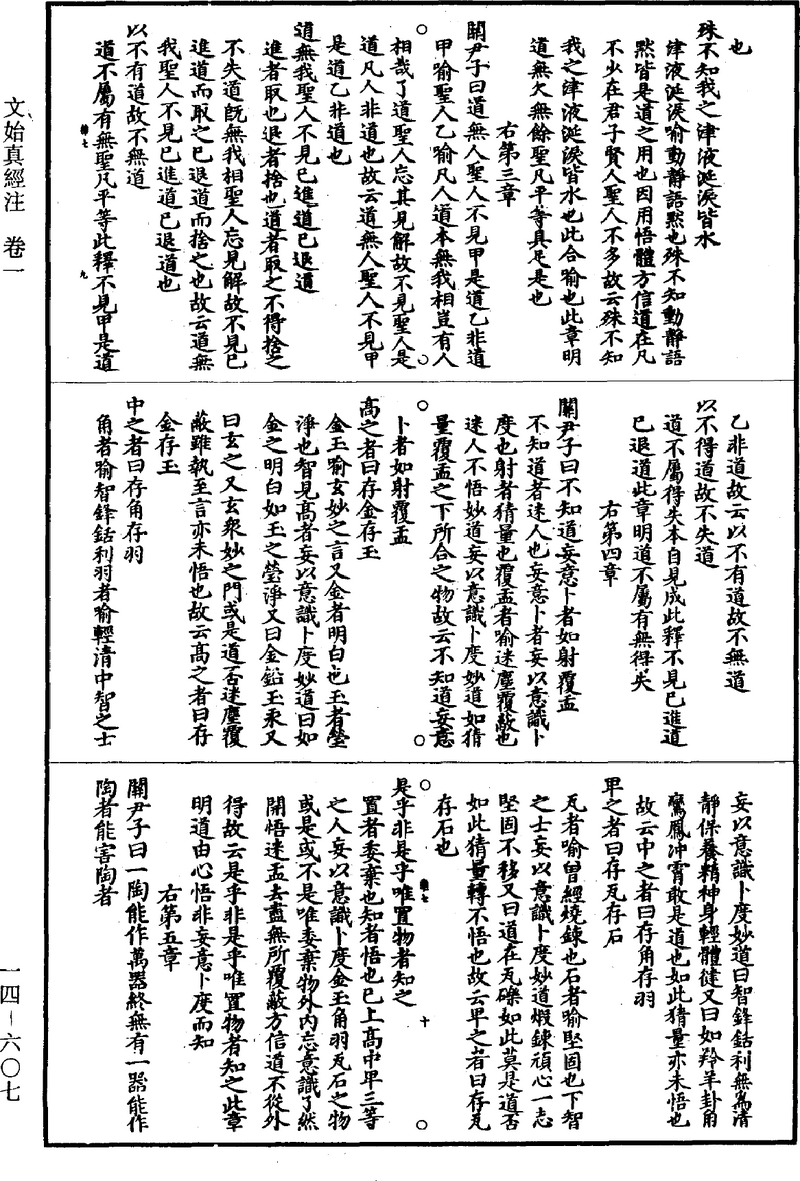 文始真經注　卷一
一四-六〇七
也
殊不知我之津液涎淚皆水
津液涎淚喻動靜語黙也殊不知動靜語
黙皆是道之用也因用悟體方信道在凡
不少在君子賢人聖人不多故云殊不知
我之津液涎淚皆水也此合喻也此章明
道無欠無餘聖凡平等具足是也
右第三章
關尹子曰道無人聖人不見甲是道乙非道
甲喻聖人乙喻凡人道本無我相豈有人
相哉了道聖人忘其見解故不見聖人是
道凡人非道也故云道無人聖人不見甲
是道乙非道也
道無我聖人不見已進道已退道
進者取也退者捨也道者取之不得捨之
不失道旣無我相聖人忘見解故不見已
進道而取之已退道而捨之也故云道無
我聖人不見已進道已退道也
以不有道故不無道
道不屬有無聖凡平等此釋不見甲是道
九
乙非道故云以不有道故不無道
以不得道故不失道
道不屬得失本自見成此釋不見已進道
已退道此章明道不屬有無得失
右第四章
關尹子曰不知道妄意卜者如射覆盂
不知道者迷人也妄意卜者妄以意識卜
度也射者猜量也覆盂者喻迷塵覆蔽也
迷人不悟妙道妄以意識卜度妙道如猜
量覆盂之下所合之物故云不知道妄意
卜者如射覆盂
高之者曰存金存玉
金玉喻玄妙之言又金者明白也玉者瑩
淨也智見高者妄以意識卜度妙道曰如
金之明白如玉之瑩淨又曰金鉛玉汞又
曰玄之又玄衆妙之門或是道否迷塵覆
蔽雖執至言亦未悟也故云高之者曰存
金存玉
中之者曰存角存羽
角者喻智鋒銛利羽者喻輕清中智之士
妄以意識卜度妙道曰智鋒銛利無爲清
靜保養精神身輕體健又曰如羚羊卦角
鸞鳳冲霄敢是道也如此猜量亦未悟也
故云中之者曰存角存羽
卑之者曰存瓦存石
瓦者喻曾經燒鍊也石者喻堅固也下智
之士妄以意識卜度妙道煅鍊頑心一志
堅固不移又曰道在瓦礫如此莫是道否
如此猜量轉不悟也故云卑之者曰存瓦
存石也
十
是乎非是乎唯置物者知之
置者委棄也知者悟也已上高中卑三等
之人妄以意識卜度金玉角羽瓦石之物
或是或不是唯委棄物外内忘意識了然
開悟迷盂去盡無所覆蔽方信道不從外
得故云是乎非是乎唯置物者知之此章
明道由心悟非妄意卜度而知
右第五章
關尹子曰一陶能作萬器終無有一器能作
陶者能害陶者